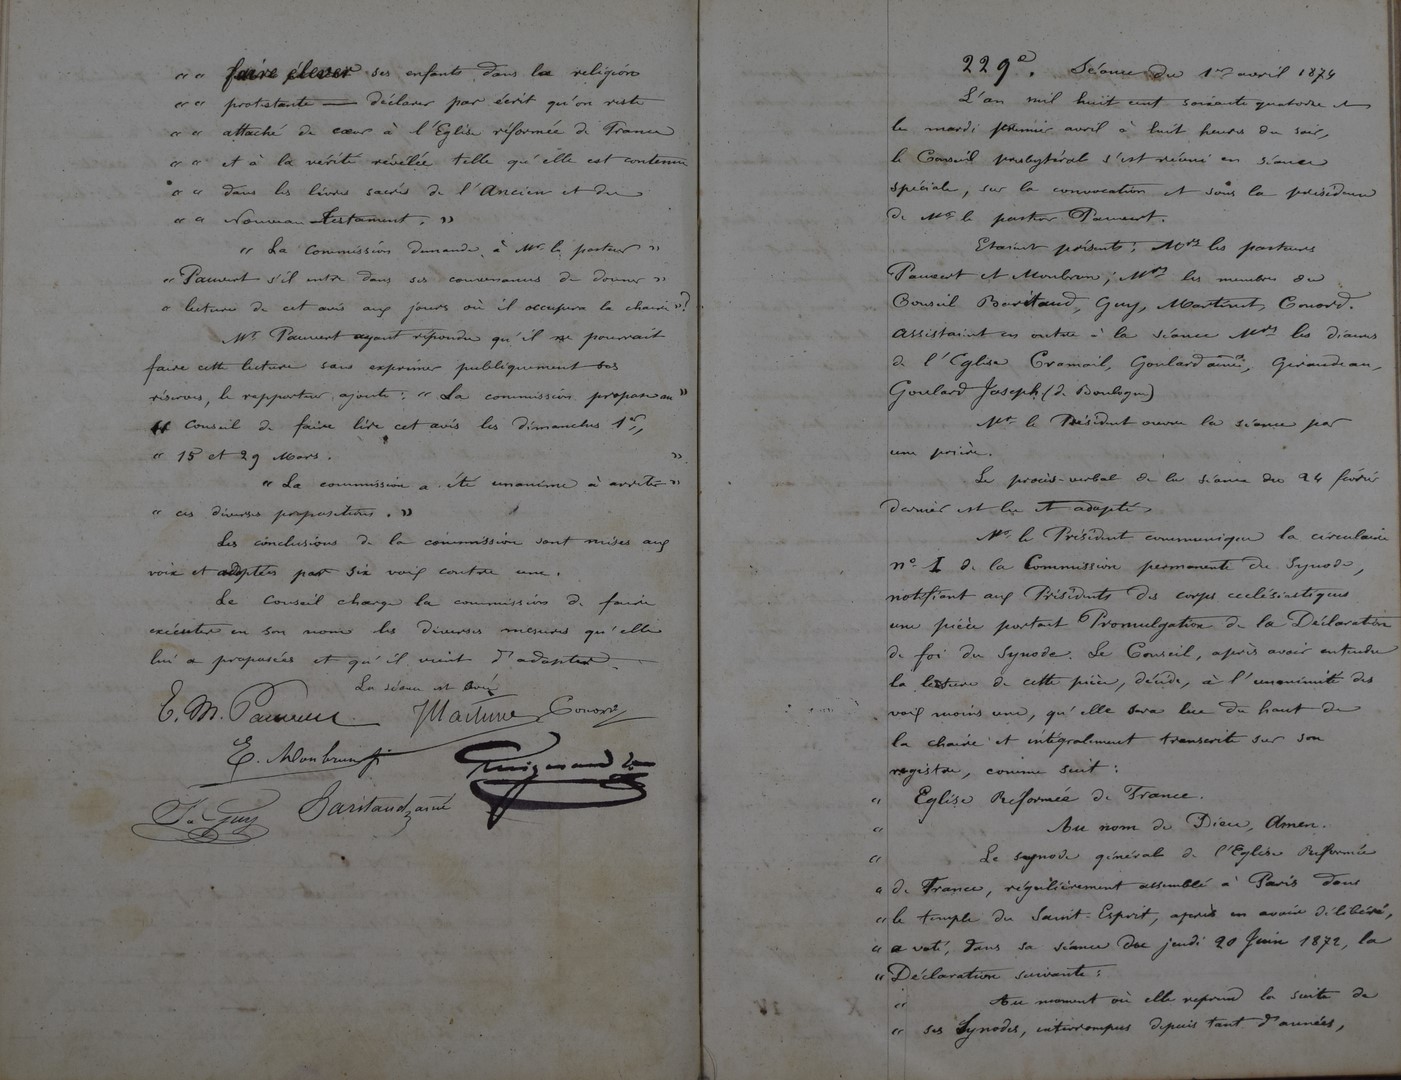 " " faire élever ses enfants dans la religion
" " protestante — déclarer par écrit qu'on reste
" " attaché de cœur à l'Eglise réformée de France
" " et à la vérité révélée telle qu'elle est contenue
" " dans les livres sacrés de l'Ancien et du
" " Nouveau Testament. "
" La commission demande à Mr. le pasteur "
" Pauvert s'il entre dans ses convenances de donner "
" lecture de cet avis aux jours où il occupera la chaire " ?
Mr. Pauvert ayant répondu qu'il ne pourrait
faire cette lecture sans exprimer publiquement ses
réserves, le rapporteur ajoute : " La commission propose au "
" Conseil de faire lire cet avis les dimanches 1er,
" 15 et 29 Mars. "
" La commission a été unanime à arrêter "
" ces diverses propositions. "
Les conclusions de la commission sont mises aux
voix et adoptées par six voix contre une.
Le Conseil charge la commission de faire
exécuter en son nom les diverses mesures qu'elle
lui a proposées et qu'il vient d'adopter.
La séance est levée
E. M. Pauvert J Martinet Conord
E. Monbrun
Guignard
Js. Guy Baritaud ainé
229e. Séance du 1er avril 1874
L'an mil huit cent soixante quatorze et
le mardi premier avril à huit heures du soir,
le Conseil presbytéral s'est réuni en séance
spéciale, sur la convocation et sous la présidence
de Mr. le pasteur Pauvert.
Etaient présents : Mrs les pasteurs
Pauvert et Monbrun ; Mrs les membres du
Conseil Baritaud, Guy, Martinet, Conord.
Assistaient en outre à la séance Mrs les diacres
de l'Eglise Cramail, Goulard ainé, Giraudeau,
Goulard Joseph (de Boulogne)
Mr. le Président ouvre la séance par
une prière.
Le procès-verbal de la séance du 24 février
dernier est lu et adopté.
Mr. le Président communique la circulaire
no I de la Commission permanente du Synode,
notifiant aux Présidents des corps ecclésiastiques
une pièce portant Promulgation de la Déclaration
de foi du Synode. Le Conseil, après avoir entendu
la lecture de cette pièce, décide, à l'unanimité des
voix moins une, qu'elle sera lue du haut de
la chaire et intégralement transcrite sur son
registre, comme suit :
" Eglise Réformée de France.
" Au nom de Dieu, Amen.
" Le synode général de l'Eglise Réformée
" de France, régulièrement assemblé à Paris dans
" le temple du Saint-Esprit, après en avoir délibéré,
" a voté, dans sa séance du jeudi 20 Juin 1872, la
" Déclaration suivante :
" Au moment où elle reprend la suite de
" ses Synodes, interrompus depuis tant d'années,